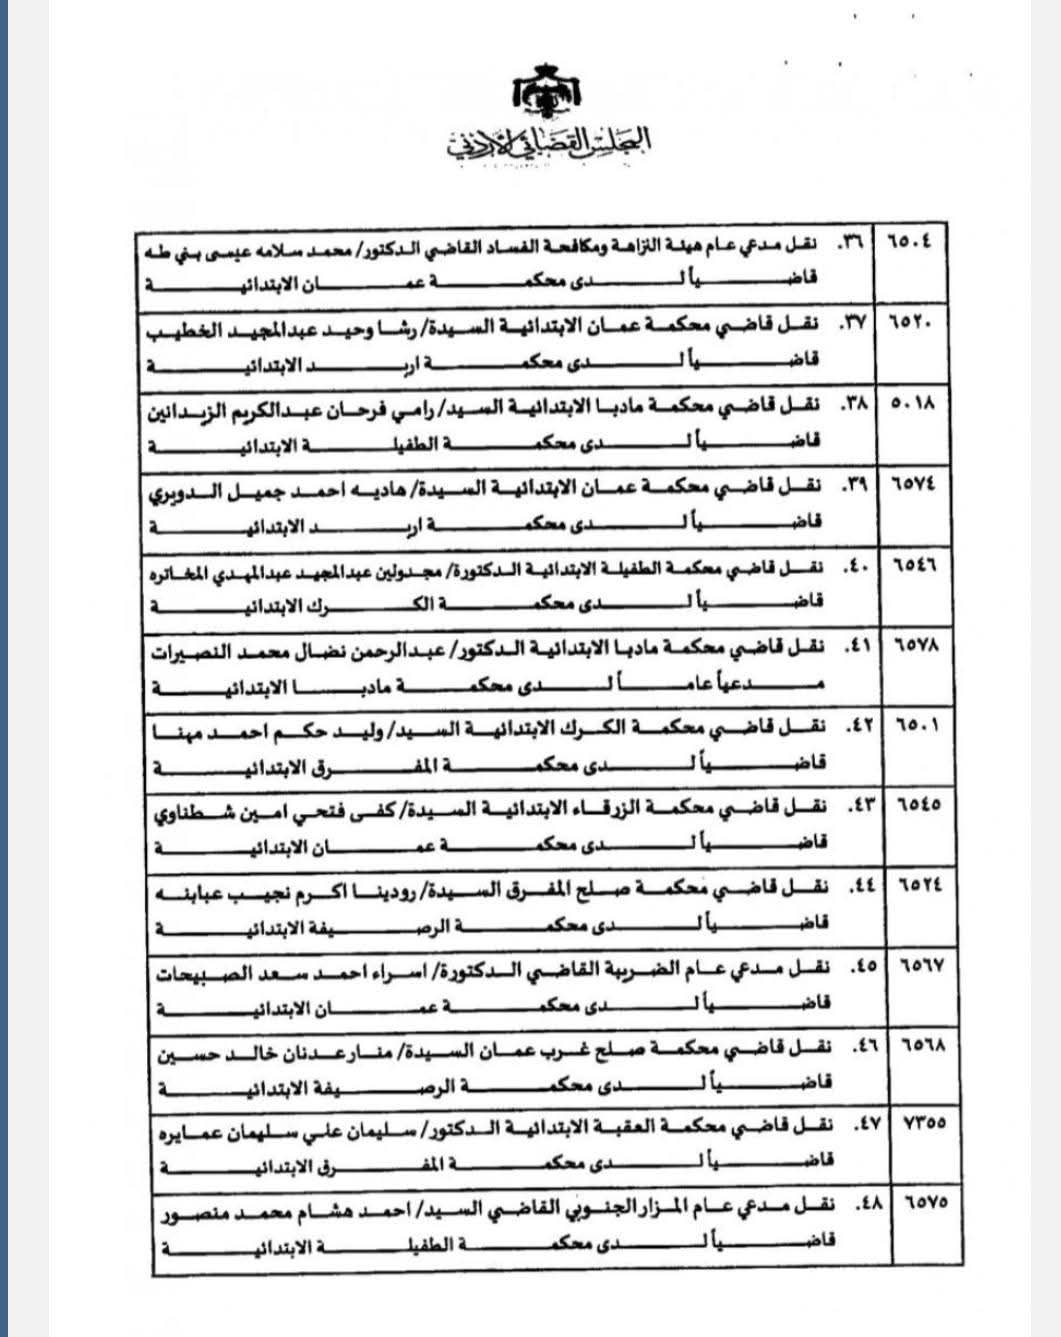 المجلس القضائي الأردني
٦٥٠٤ ٣٦. نقل مدعي عام هيئة النزاهة ومكافحة الفساد القاضي الدكتور/ محمد سلامه عيسى بني طه
قاضياً لدى محكمة عمان الابتدائية
٦٥٢٠ ٣٧. نقل قاضي محكمة عمان الابتدائية السيدة/ رشا وحيد عبدالمجيد الخطيب
قاضياً لدى محكمة اربد الابتدائية
٥٠١٨ ٣٨. نقل قاضي محكمة مادبا الابتدائية السيد/ رامي فرحان عبدالكريم الزيدانين
قاضياً لدى محكمة الطفيلة الابتدائية
٦٥٧٤ ٣٩. نقل قاضي محكمة عمان الابتدائية السيدة/ هاديه احمد جميل الدويري
قاضياً لدى محكمة اربد الابتدائية
٦٥٤٦ ٤٠. نقل قاضي محكمة الطفيلة الابتدائية الدكتورة/ مجدولين عبدالمجيد عبدالمهدي المخاتره
قاضياً لدى محكمة الكرك الابتدائية
٦٥٧٨ ٤١. نقل قاضي محكمة مادبا الابتدائية الدكتور/ عبدالرحمن نضال محمد النصيرات
مدعياً عاماً لدى محكمة مادبا الابتدائية
٦٥٠١ ٤٢. نقل قاضي محكمة الكرك الابتدائية السيد/ وليد حكم احمد مهنا
قاضياً لدى محكمة المفرق الابتدائية
٦٥٤٥ ٤٣. نقل قاضي محكمة الزرقاء الابتدائية السيدة/ كفى فتحي امين شطناوي
قاضياً لدى محكمة عمان الابتدائية
٦٥٢٤ ٤٤. نقل قاضي محكمة صلح المفرق السيدة/ رودينا اكرم نجيب عبابنه
قاضياً لدى محكمة الرصيفة الابتدائية
٦٥٦٧ ٤٥. نقل مدعي عام الضريبة القاضي الدكتورة/ اسراء احمد سعد الصبيحات
قاضياً لدى محكمة عمان الابتدائية
٦٥٦٨ ٤٦. نقل قاضي محكمة صلح غرب عمان السيدة/ منار عدنان خالد حسين
قاضياً لدى محكمة الرصيفة الابتدائية
٧٣٥٥ ٤٧. نقل قاضي محكمة العقبة الابتدائية الدكتور/ سليمان علي سليمان عمايره
قاضياً لدى محكمة المفرق الابتدائية
٦٥٧٥ ٤٨. نقل مدعي عام المزار الجنوبي القاضي السيد/ احمد هشام محمد منصور
قاضياً لدى محكمة الطفيلة الابتدائية